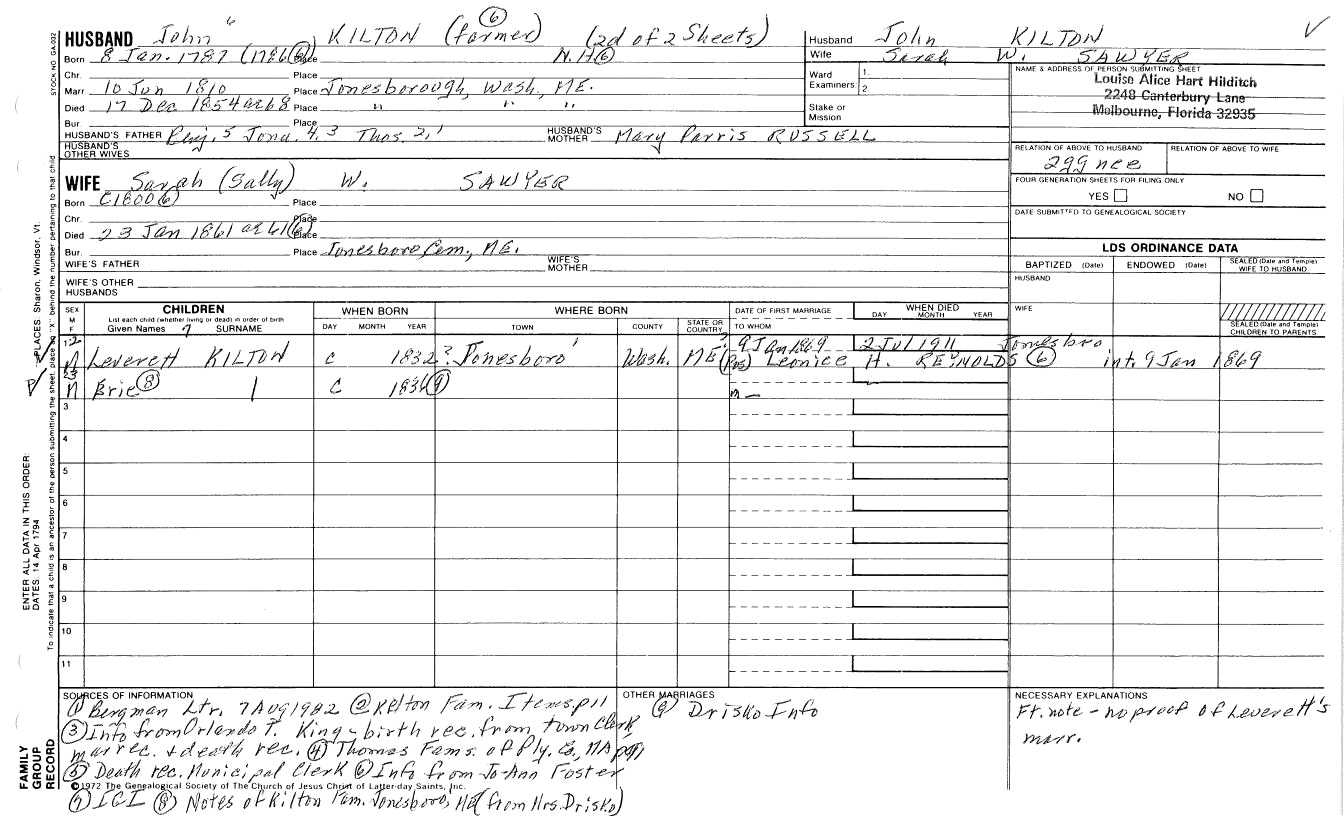 HUSBAND John 6 KILTON (farmer) 6 (2d of 2 Sheets)
Born 8 Jan. 1787 (1786 6) Place N.H 6
Chr. Place
Marr 10 Jun 1810 Place Jonesborough, Wash, ME.
Died 17 Dec 1854 ae 68 Place " " "
Bur Place
HUSBAND'S FATHER Benj. 5 Jona. 4, 3 Thos. 2, 1 HUSBAND'S MOTHER Mary Parris RUSSELL
HUSBAND'S OTHER WIVES
WIFE Sarah (Sally) W. SAWYER
Born C1800 6 Place
Chr. Place
Died 23 Jan 1861 ae 61 (6) Place
Bur. Place Jonesboro Cem., ME.
WIFE'S FATHER WIFE'S MOTHER
WIFE'S OTHER HUSBANDS
Husband John KILTON
Wife Sarah W. SAWYER
Ward Examiners 1. 2.
Stake or Mission
NAME & ADDRESS OF PERSON SUBMITTING SHEET
Louise Alice Hart Hilditch
2248 Canterbury Lane
Melbourne, Florida 32935
RELATION OF ABOVE TO HUSBAND RELATION OF ABOVE TO WIFE
2ggnce
FOUR GENERATION SHEETS FOR FILING ONLY
YES NO
DATE SUBMITTED TO GENEALOGICAL SOCIETY
LDS ORDINANCE DATA
BAPTIZED (Date) ENDOWED (Date) SEALED (Date and Temple) WIFE TO HUSBAND
HUSBAND
WIFE
SEALED (Date and Temple) CHILDREN TO PARENTS
SEX M F
CHILDREN
List each child (whether living or dead) in order of birth
Given Names 7 SURNAME
WHEN BORN
DAY MONTH YEAR
WHERE BORN
TOWN COUNTY STATE OR COUNTRY
DATE OF FIRST MARRIAGE
TO WHOM
WHEN DIED
DAY MONTH YEAR
12 9 Jan 1869 2 Jul 1911 Jonesbro
M Leverett KILTON c 1832? Jonesboro Wash. ME (Pos) Leonice H. REYNOLDS 6 int. 9 Jan 1869
M Brie 8 c 1836 9 m —
3
4
5
6
7
8
9
10
11
SOURCES OF INFORMATION
1 Bergman Ltr, 7 Aug 1982 2 Kelton Fam. Items, p11
3 Info from Orlando T. King - birth rec. from town clerk
mar rec. + death rec. 4 Thomas Fams. of Ply. Co., MA
5 Death rec. Municipal Clerk 6 Info from Jo-Ann Foster
©1972 The Genealogical Society of The Church of Jesus Christ of Latter-day Saints, Inc.
7 IGI 8 Notes of Kilton Fam. Jonesboro, ME (from Mrs. Drisko)
OTHER MARRIAGES
9 Drisko Info
NECESSARY EXPLANATIONS
Ft. note - no proof of Leverett's
marr.
STOCK NO. GA-032
PLACES: Sharon, Windsor, Vt.
To indicate that a child is an ancestor of the person submitting the sheet, place an "X" behind the number pertaining to that child
ENTER ALL DATA IN THIS ORDER:
DATES: 14 Apr 1794
FAMILY GROUP RECORD